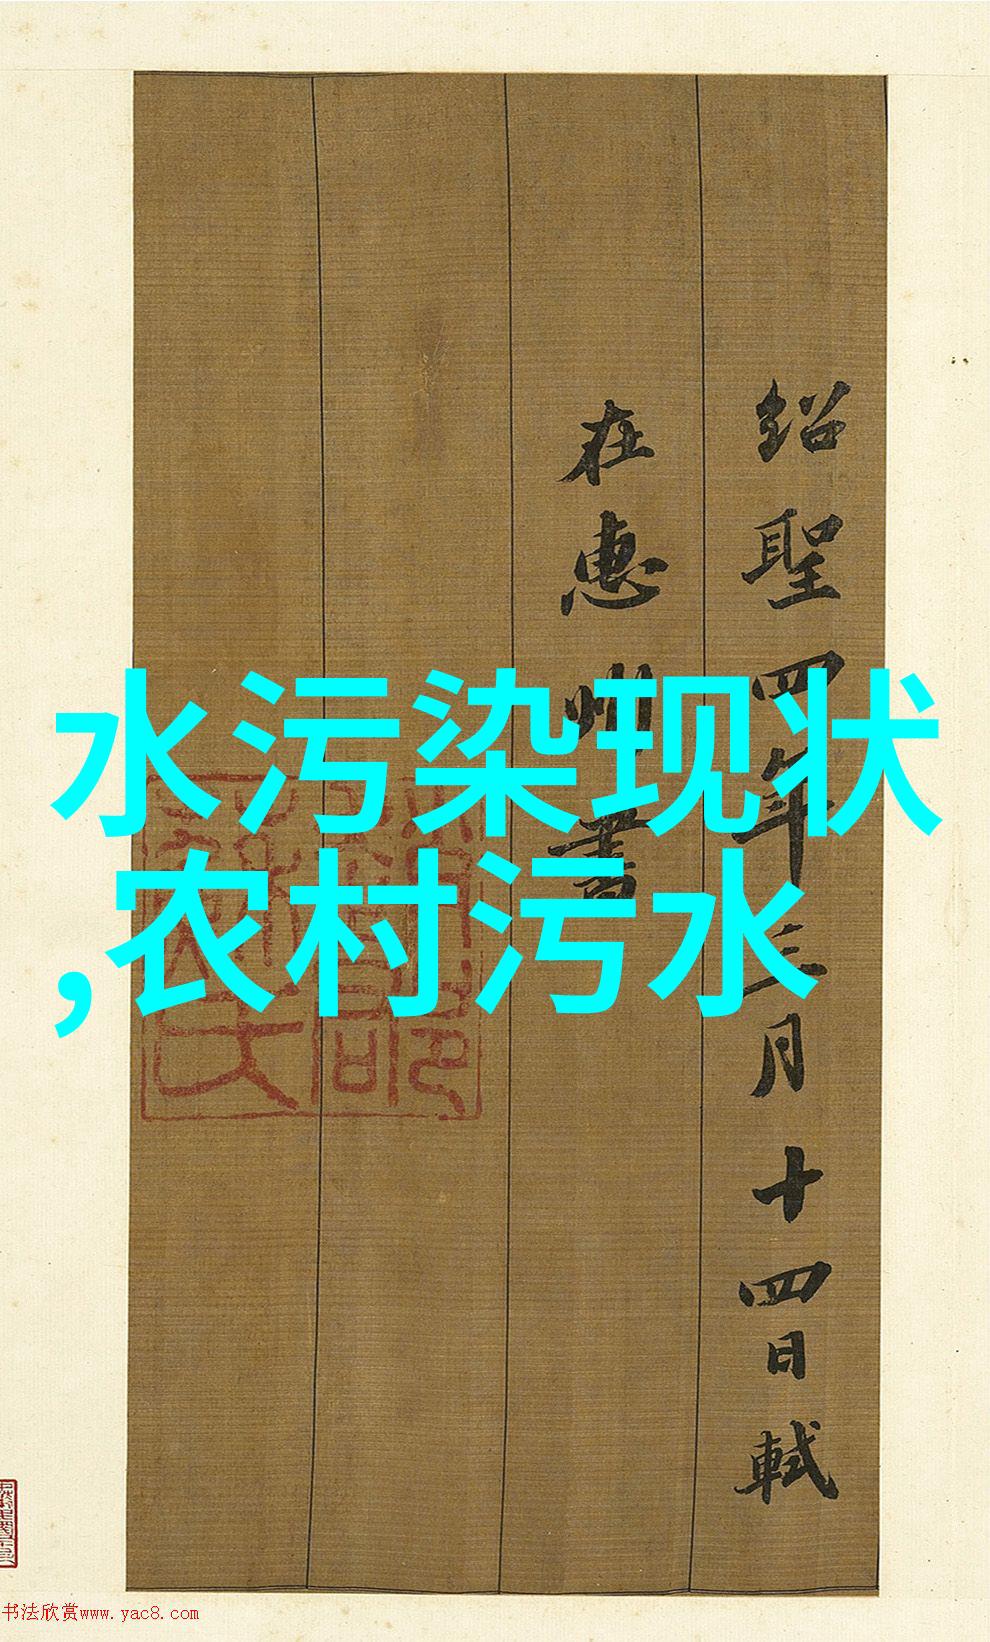 紹聖四年三月十四日軾
在惠州書
水污染现状
,农村污水
书法欣赏www.yac8.com